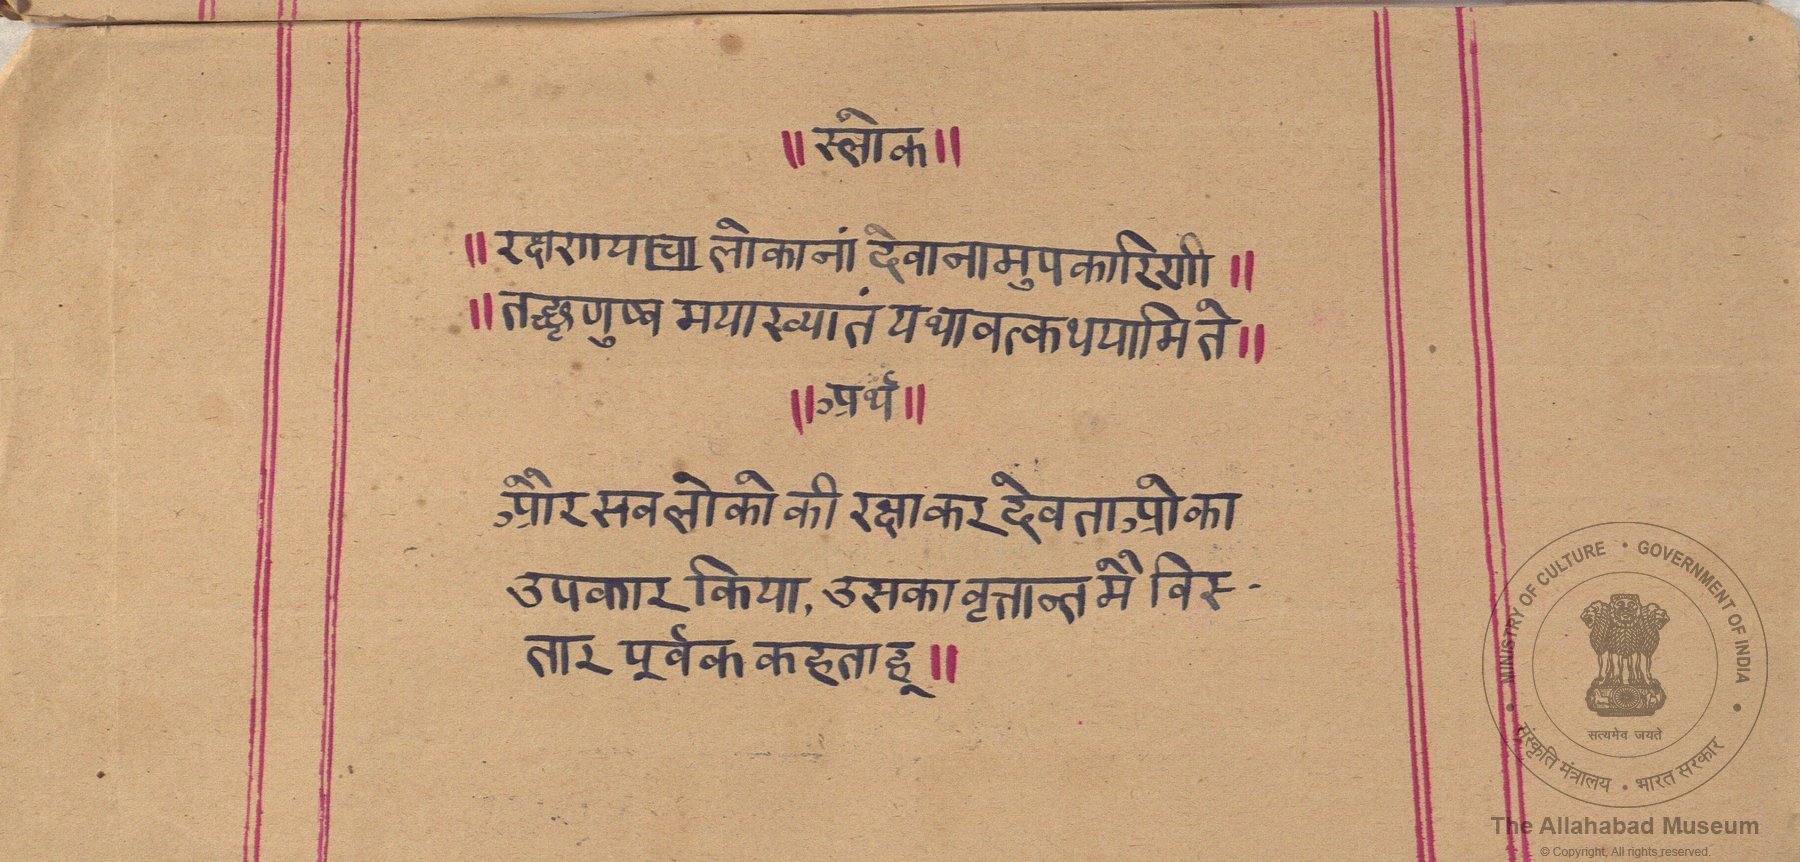 ॥ स्लोक ॥
॥ रक्षणाय चा लोकानां देवानामुपकारिणी ॥
॥ तच्छृणुष्व मयाख्यातं यथावत्कथयामि ते ॥
॥ अर्थ ॥
और सव लोको की रक्षा कर देवताओ का
उपकार किया, उसका वृत्तान्त मै विस्-
तार पूर्वक कहता हू ॥
MINISTRY OF CULTURE • GOVERNMENT OF INDIA
सत्यमेव जयते
संस्कृति मंत्रालय • भारत सरकार
The Allahabad Museum
© Copyright, All rights reserved.